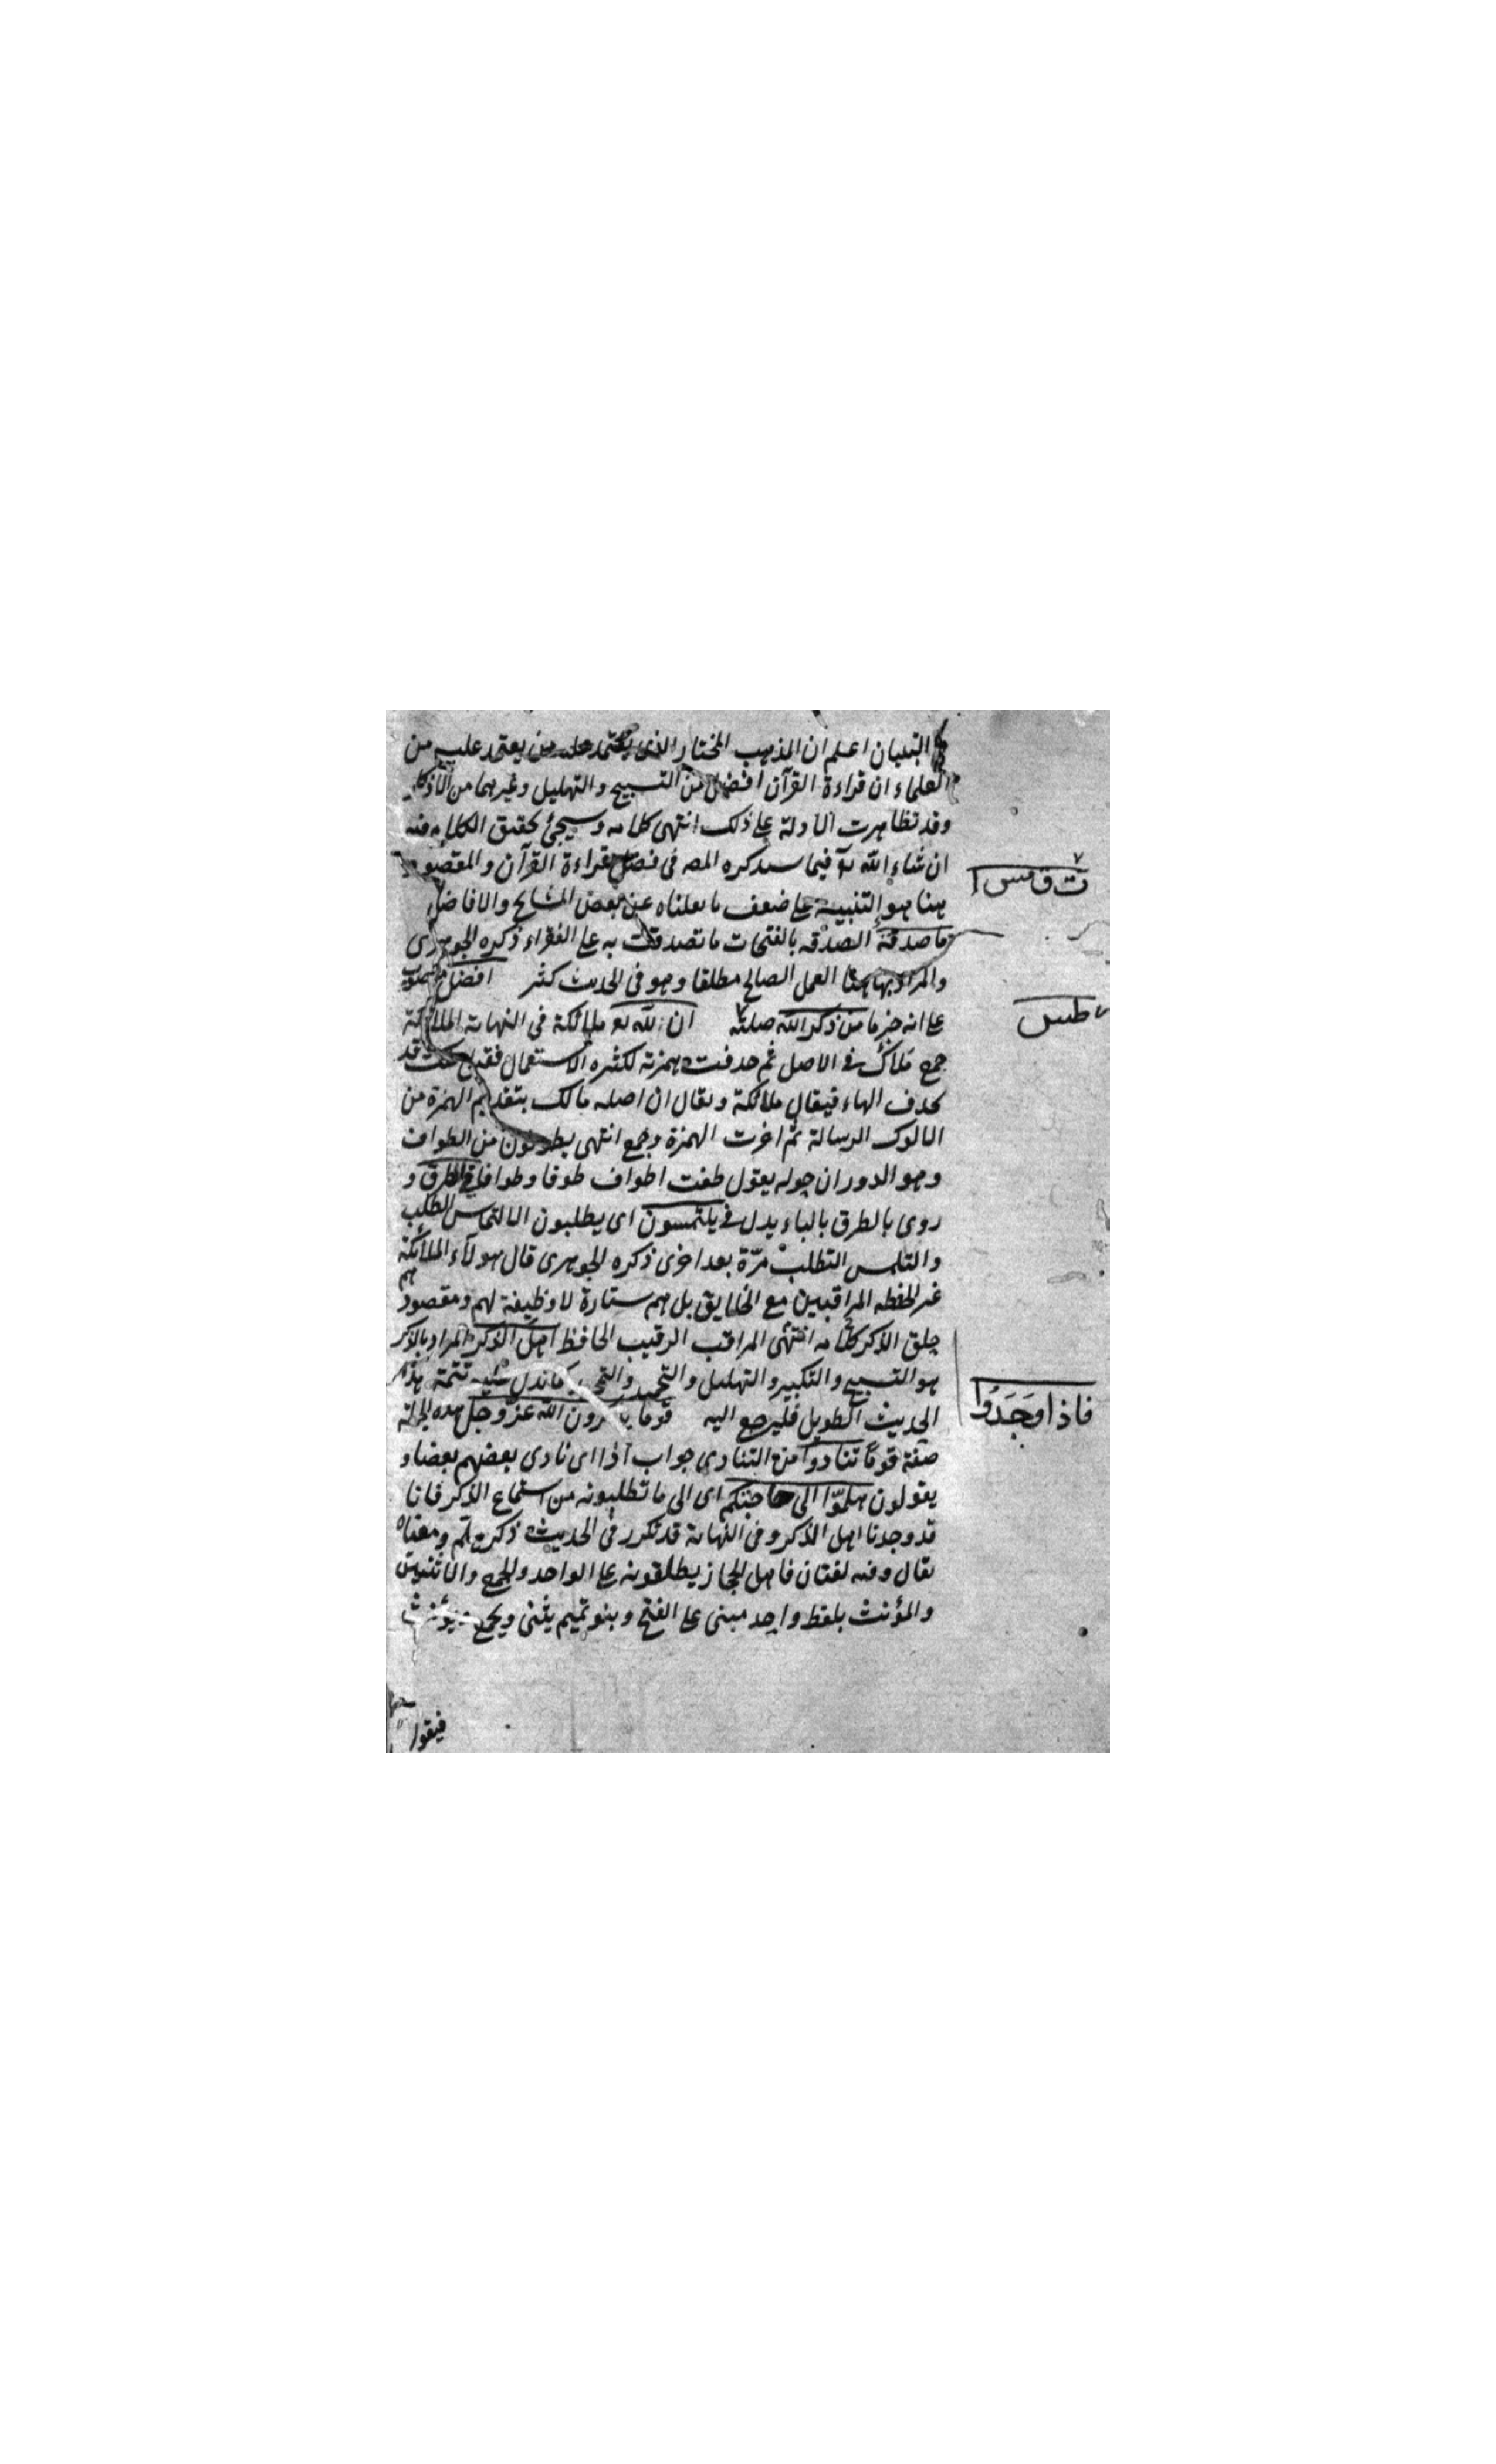 التبيان اعلم ان المذهب المختار الذى يعتمد عليه من يعتمد عليه من
العلماء ان قراءة القرآن افضل من التسبيح والتهليل وغيرهما من الاذكار
وقد تظاهرت الادلة على ذلك انتهى كلامه وسيجئ تحقيق الكلام فيه
ان شاء الله تع فيما سيذكره المص فى فضل قراءة القرآن والمقصود
هنا هو التنبيه على ضعف ما نقلناه عن بعض المشايخ والافاضل
ما صدقة الصدقه بالفتحات ما تصدقت به على الفقراء ذكره الجوهرى
والمراد بها هنا العمل الصالح مطلقا وهو فى الحديث كثير افضل منصوب
على انه خبر ما من ذكر الله صلته ان لله تع ملائكة فى النهاية الملائكة
جمع ملأك فى الاصل ثم حذفت همزته لكثرة الاستعمال فقيل ملك وقد
تحذف الهاء فيقال ملائكة ويقال ان اصله مالك بتقديم الهمزة من
الالوك الرسالة ثم اخرت الهمزة وجمع انتهى يطوفون من الطواف
وهو الدوران حوله يقول طفت اطواف طوفا وطوافا فى الطرق و
روى بالطرق بالباء بدل فى يلتمسون اى يطلبون الالتماس الطلب
والتلمس التطلب مرّة بعد اخرى ذكره الجوهرى قال هولآء الملائكة
غير الحفظه المراقبين مع الخلايق بل هم سيارة لا وظيفة لهم ومقصودهم
حلق الذكر كلامه انتهى المراقب الرقيب الحافظ اهل الذكر المراد بالذكر
هو التسبيح والتكبير والتهليل والتحميد والتمجيد كما يدل عليه تتمة هذا
الحديث الطويل فليرجع اليه قوما يذكرون الله عزّ وجل هذه الجملة
فاذا وَجَدُوا
صفة قوما تنادوا من التنادى جواب اذا اى نادى بعضهم بعضا و
يقولون هلمّوا الى حاجتكم اى الى ما تطلبونه من استماع الذكر فانا
قد وجدنا اهل الذكر وفى النهاية قد تكرر فى الحديث ذكر هلم ومعناه
تعال وفيه لغتان فاهل الحجاز يطلقونه على الواحد والجمع والاثنين
والمؤنث بلفظ واحد مبنى على الفتح وبنو تميم يثنى ويجمع ويؤنث
فيقول